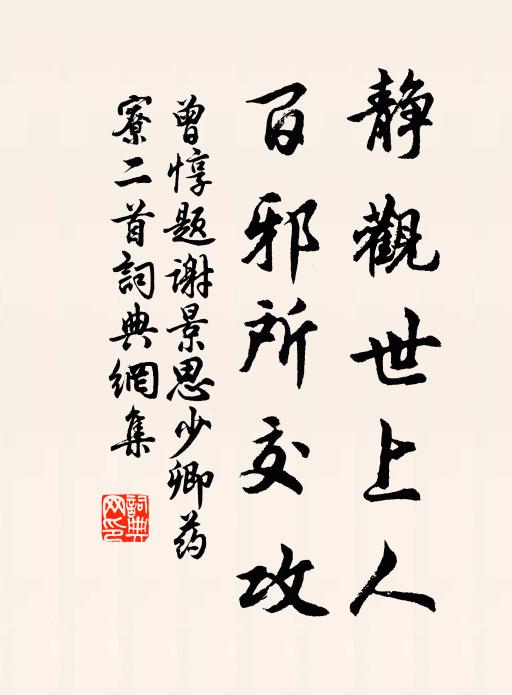 静觀世上人
百邪所交攻
曾惇題谢景思少卿药
寮二首詞典網集
詞典網印